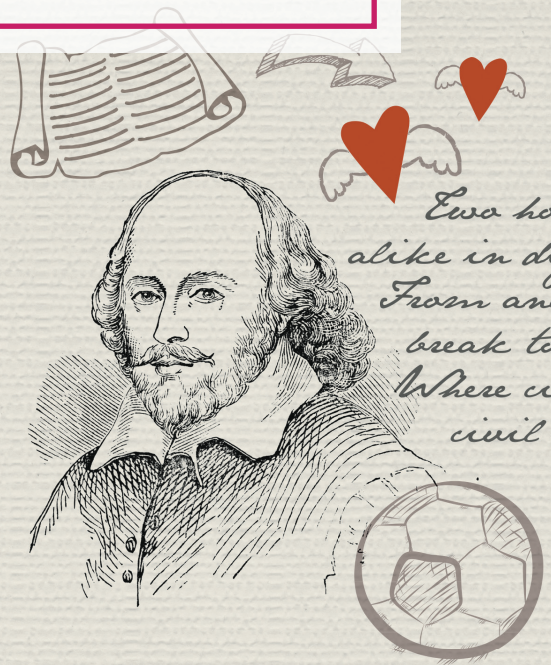 Two ho
alike in di
From an
break to
Where ci
civil